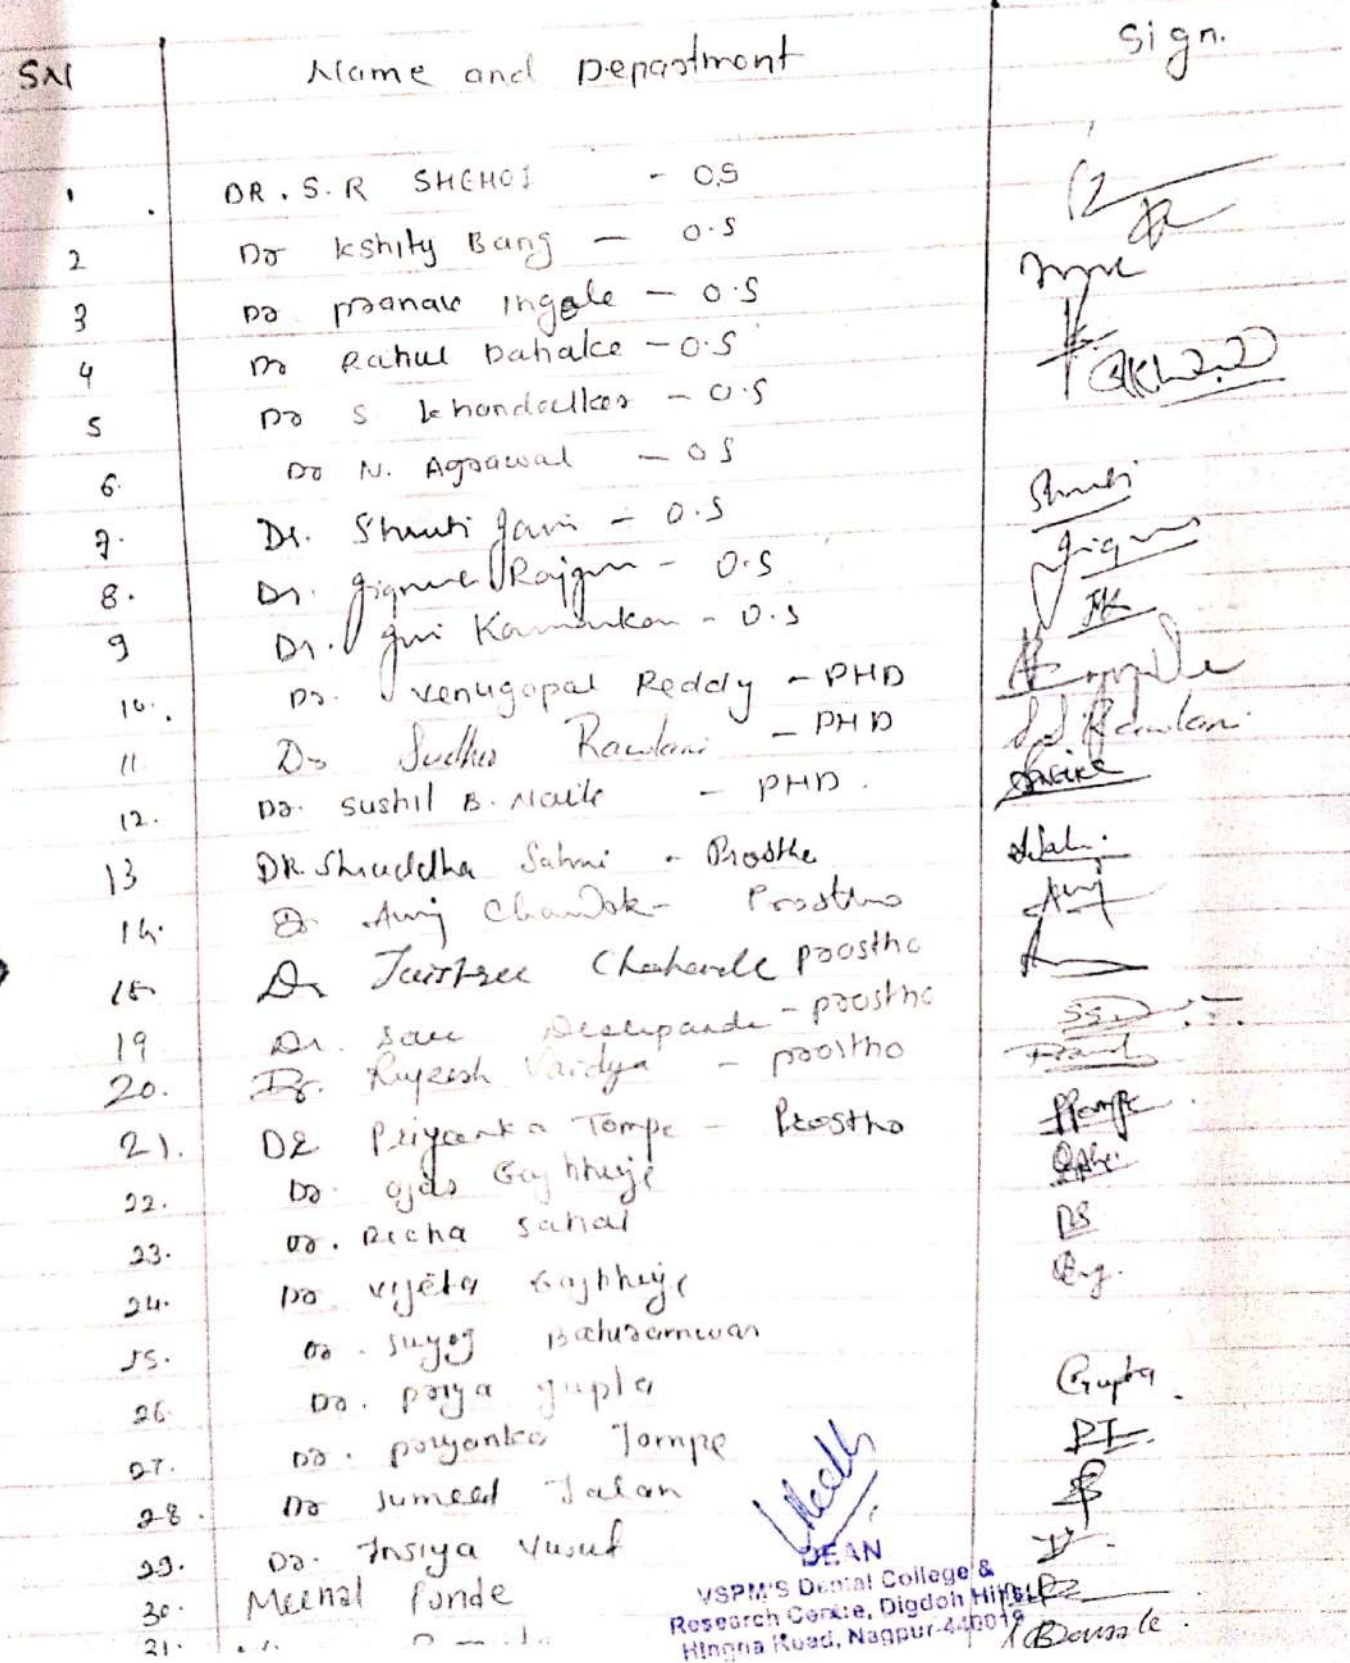 SN Name and Department Sign.
1 DR. S. R SHENOI - O.S
2 Dr Kshitij Bang - O.S
3 Dr Pranav Ingole - O.S
4 Dr Rahul Dahake - O.S
5 Dr S Khandelkar - O.S
6. Dr N. Agrawal - OS
7. Dr. Shruti Jain - O.S Shruti
8. Dr. Rajgure - O.S
9 Dr. - O.S JK
10. Dr. Venugopal Reddy - PHD
11 Dr Sudhir Rawlani - PHD Rawlani
12. Dr. Sushil B. Naik - PHD. SNaik
13 DR. Shraddha Sahni - Prostho
14. Dr Anuj Chandak - Prostho Anuj
15 Dr Jaishree Chahande prostho
19 Dr. Saee Deshpande - prostho
20. Dr. Rupesh Vaidya - prostho
21). DR Priyanka Tompe - Prostho PTompe
22. Dr. Ojas Gajbhiye
23. Dr. Richa Sahai RS
24. Dr Vijeta Gajbhiye
25. Dr. Suyog
26. Dr. priya gupta Gupta
27. Dr. priyanka Tompe PT.
28. Dr Sumeet Jalan
29. Dr. Insiya Yusuf
30. Meenal Punde
31.
DEAN
VSPM'S Dental College &
Research Centre, Digdoh Hills,
Hingna Road, Nagpur-440019